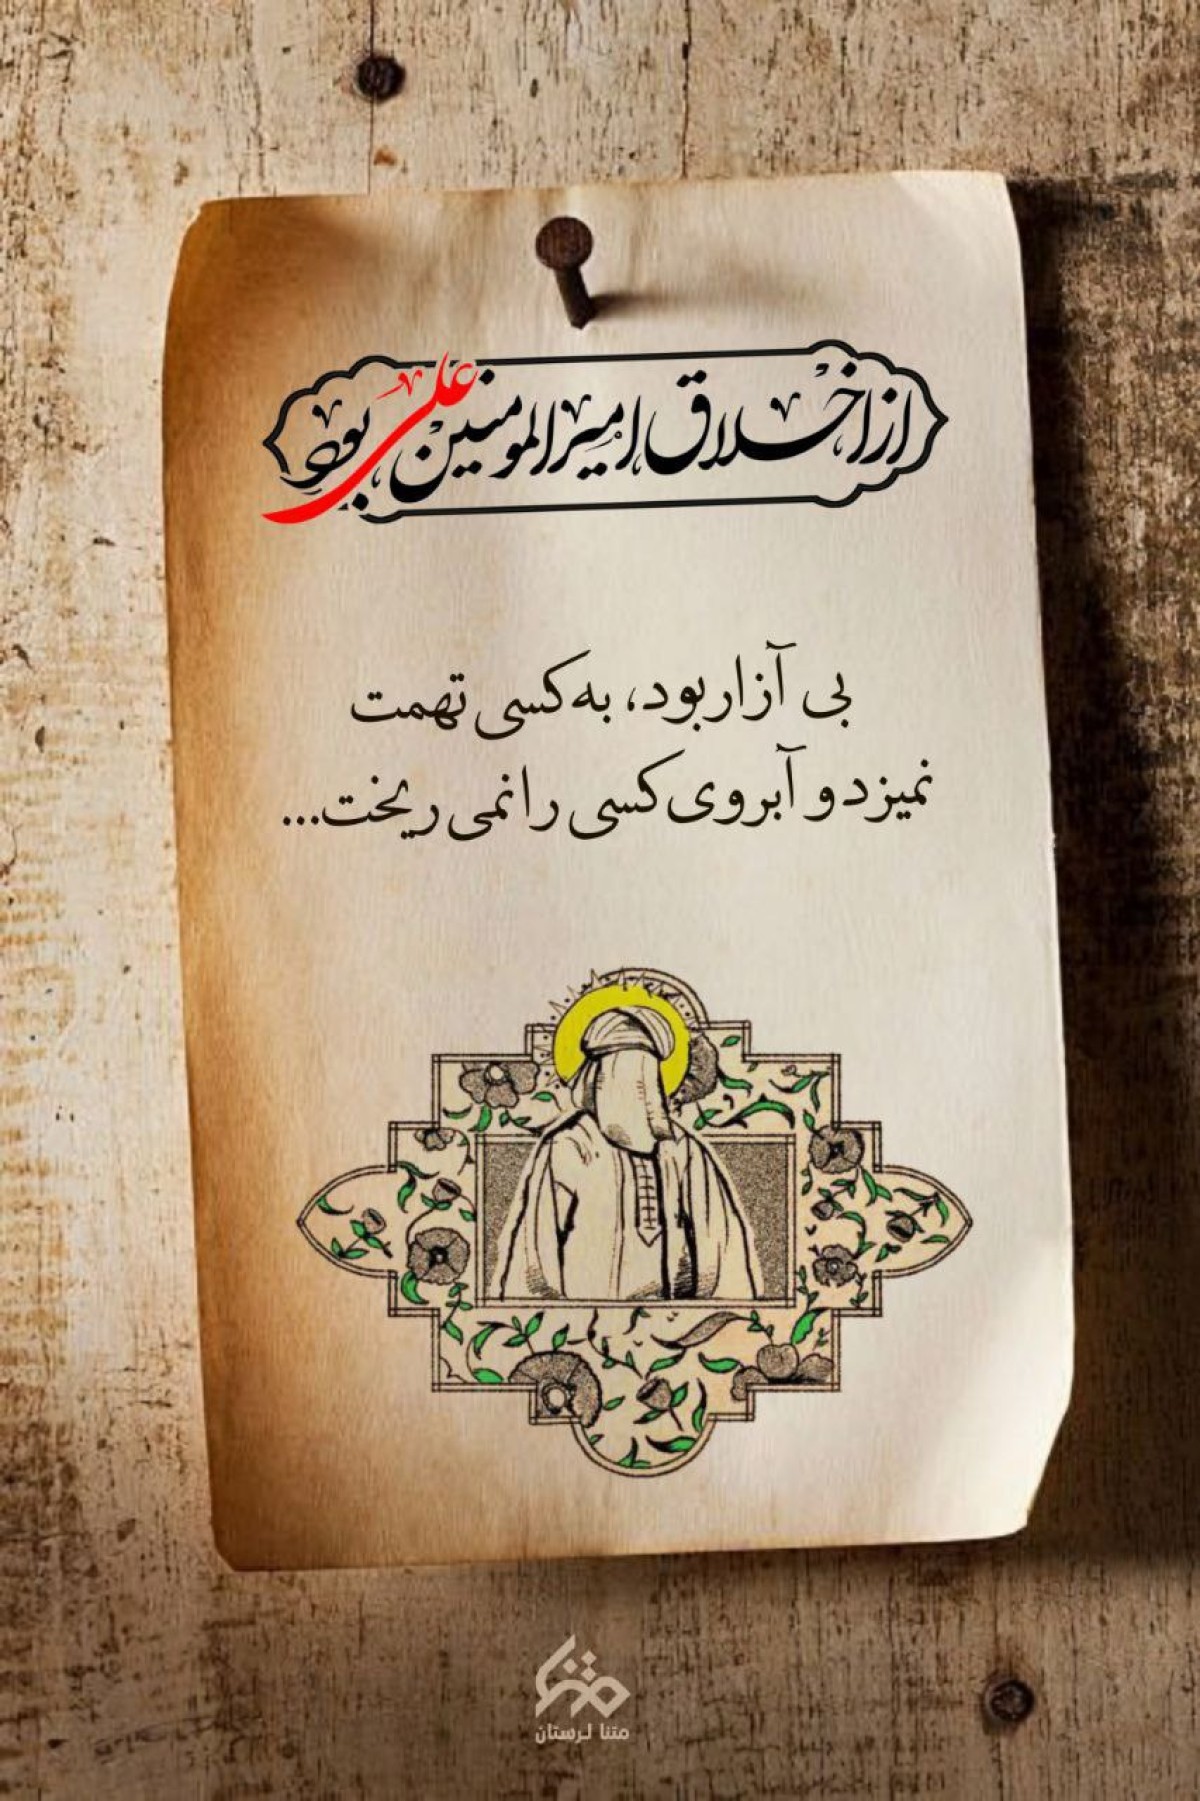 از اخلاق امیرالمومنین علی بود
بی آزار بود، به کسی تهمت
نمیزد و آبروی کسی را نمی ریخت...
متنا لرستان